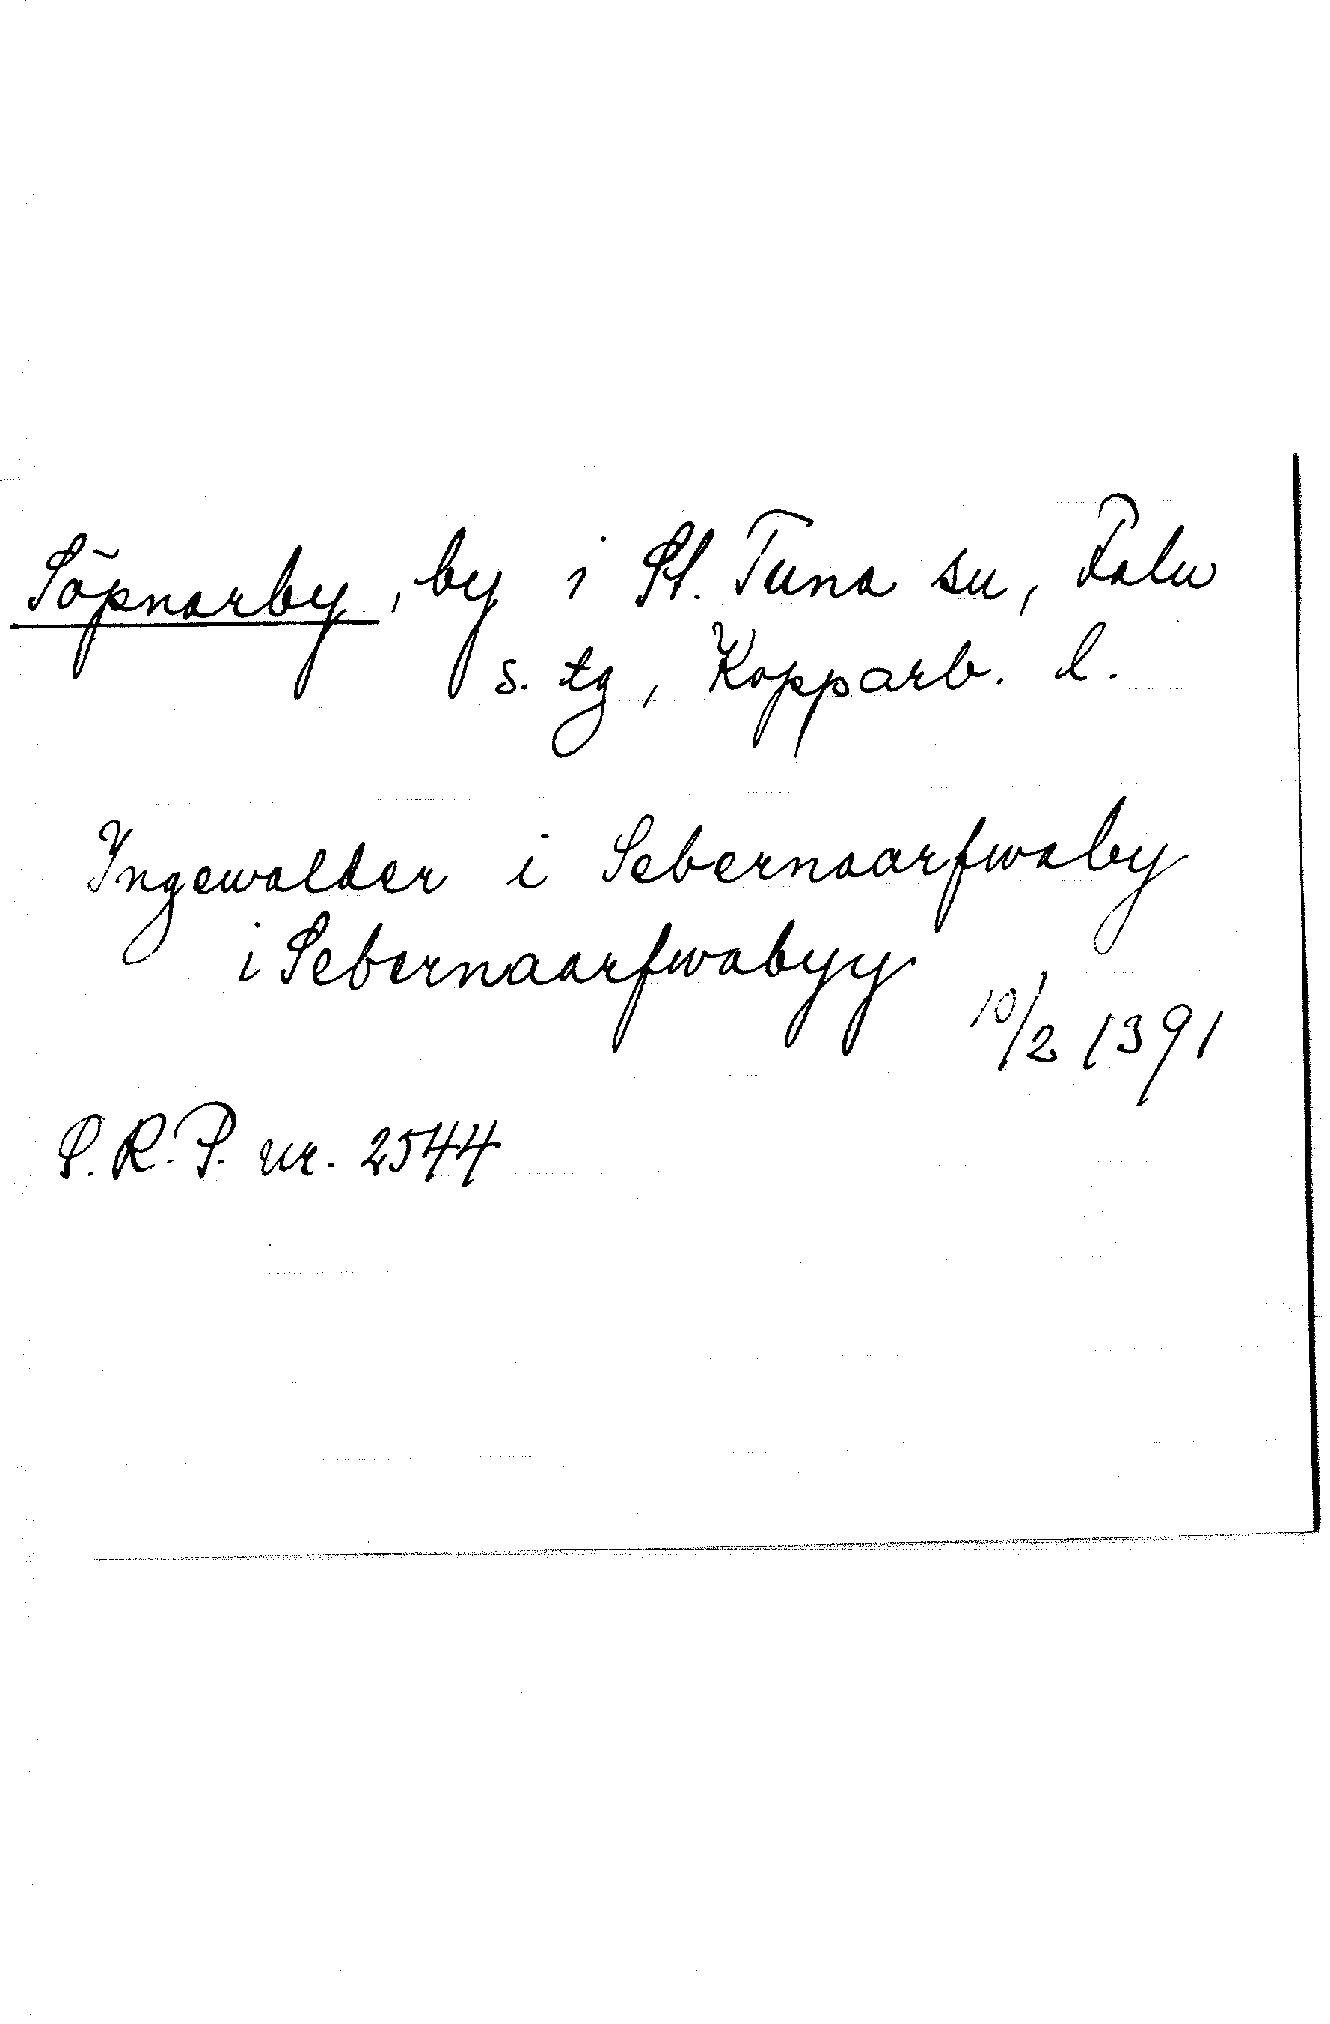 Söpnarby, by i St. Tuna sn, Falu
s. tg, Kopparb. l.
Ingewalder i Sebernaarfwaby
i Sebernaarfwabyy
10/2 1391
S.R.P. nr. 2544